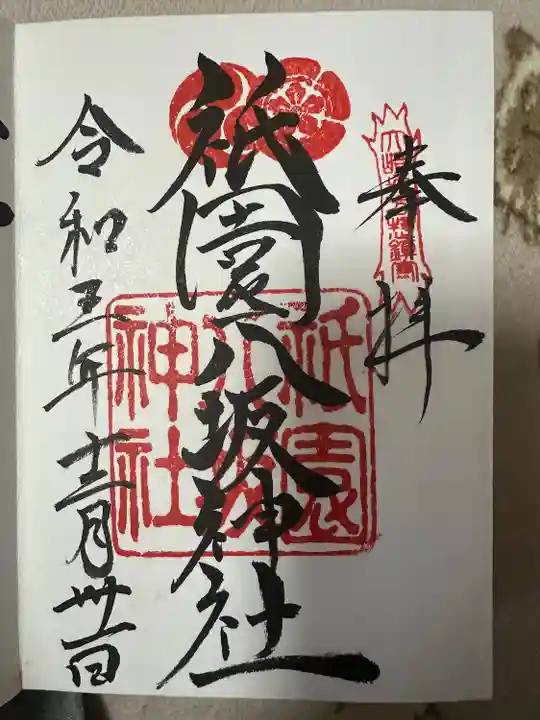 奉拝
祇園八坂神社
祇園
八坂
神社
令和三年十二月卅一日